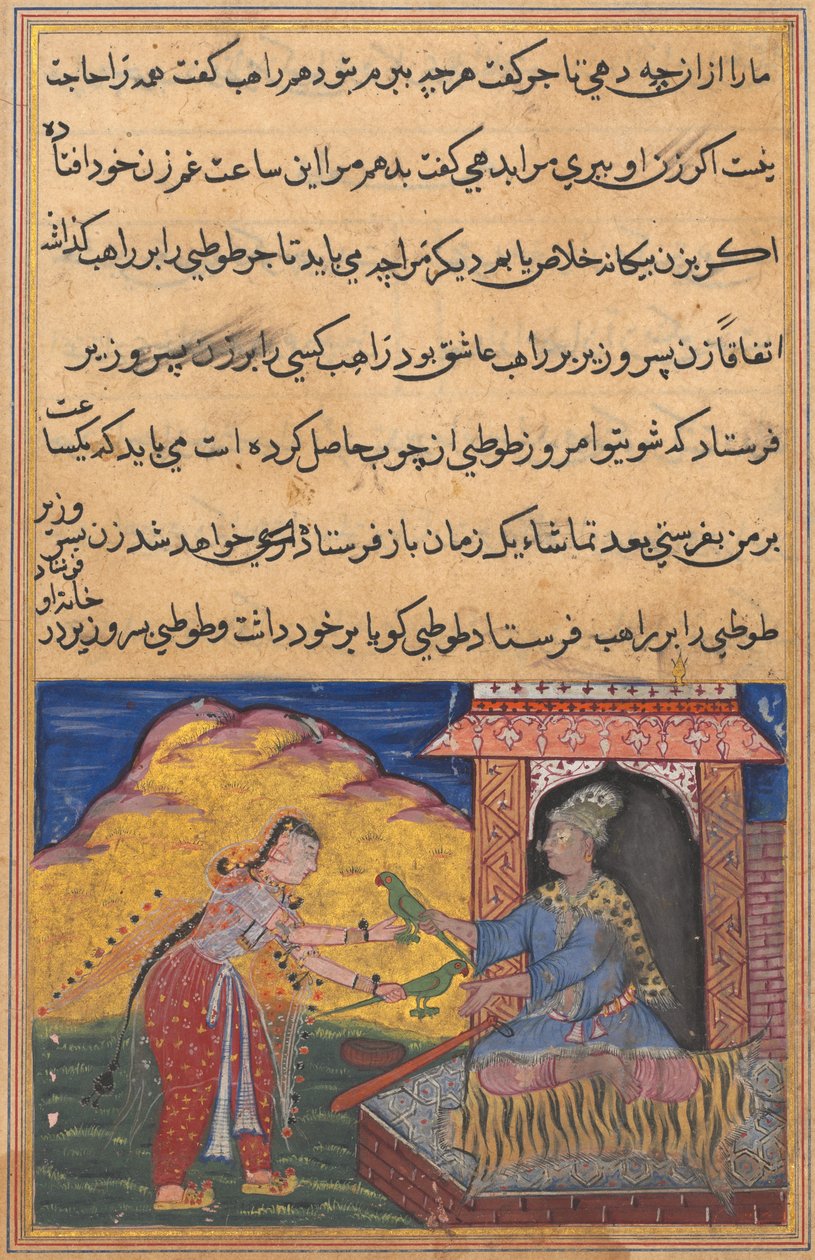 مارا ازان چه دهي تاجر گفت هرچه ببرم بتو دهم راهب گفت همه را حاجت
نيست اكر زن او ببري مرا بدهي گفت بدهم مرا اين ساعت غم زن خود افتاده
اكر بزن بيكانه خلاص يابم ديكر مرا چه مي بايد تاجر طوطيي را بر راهب كذاشت
اتفاقاً زن پسر وزير بر راهب عاشق بود راهب كسي را بر زن پسر وزير
فرستاد كه شوي تو امروز طوطيي از چوب حاصل كرده است مي بايد كه يكساعت
بر من بفرستي بعد تماشاء يك زمان باز فرستاده خواهد شد زن پسر وزير
طوطيي را بر راهب فرستاد طوطيي كويا بر خود داشت و طوطيي پسر وزير در خانهٔ او فرستاد